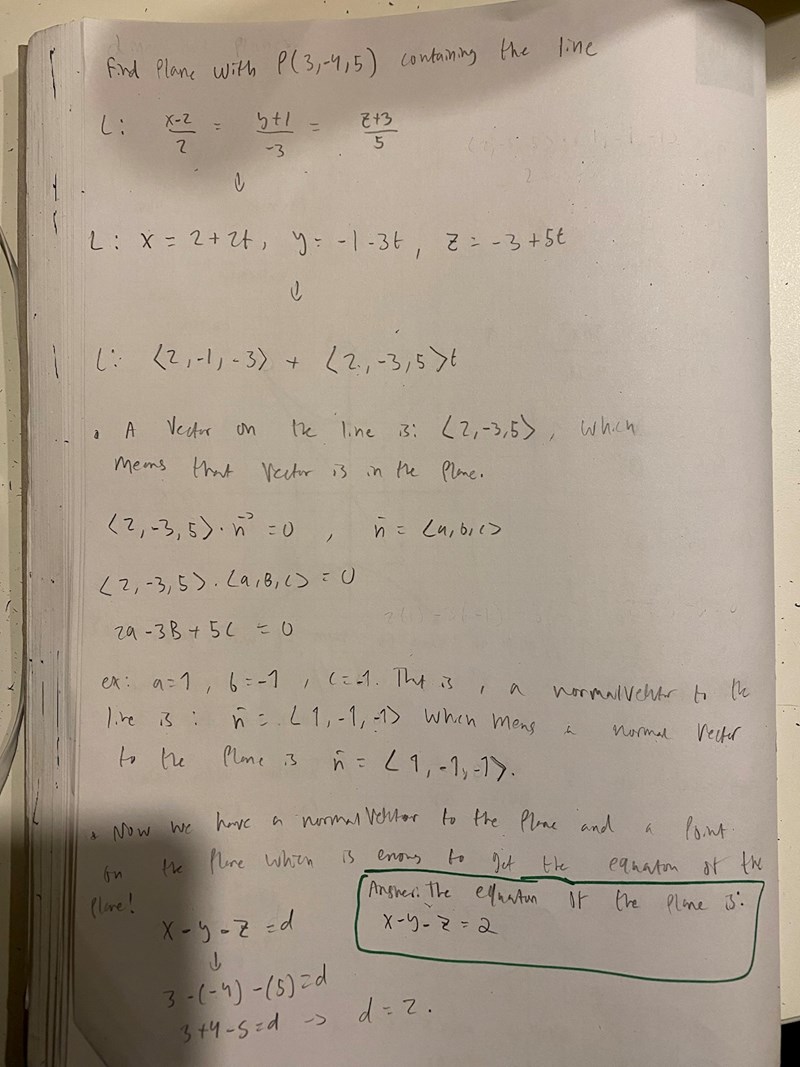 Find Plane with P(3,-4,5) containing the line
L: x-2/2 = y+1/-3 = z+3/5
↓
L: x = 2+2t, y = -1-3t, z = -3+5t
↓
L: <2,-1,-3> + <2,-3,5>t
• A Vector on the line is: <2,-3,5>, which
means that vector is in the plane.
<2,-3,5>·n⃗ = 0 , n̄ = <a,b,c>
<2,-3,5>·<a,B,c> = 0
2a-3B+5C = 0
ex: a=1, b=-1, c=-1. That is, a normalvektor to the
line is: n̄ = <1,-1,-1> which means a normal vector
to the plane is n̄ = <1,-1,-1>.
• Now we have a normalvektor to the plane and a point
on the plane which is to get the equation of the
plane!
Answer: The equation of the plane is:
x-y-z = 2
x-y-z = d
↓
3-(-4)-(5)=d
3+4-5=d -> d=2.